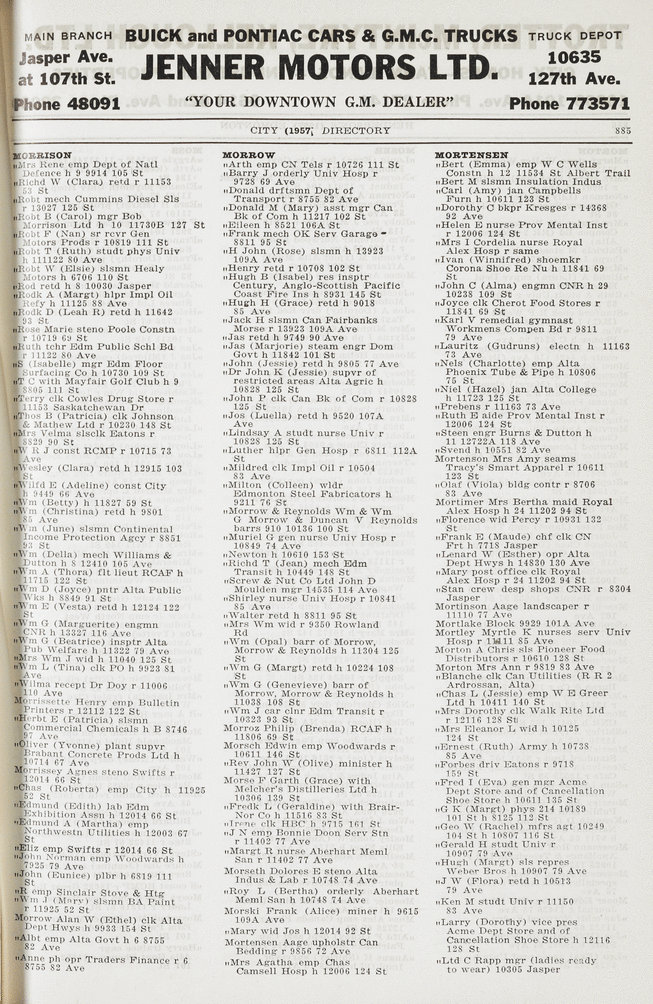 MAIN BRANCH BUICK and PONTIAC CARS & G.M.C. TRUCKS TRUCK DEPOT
Jasper Ave. JENNER MOTORS LTD. 10635
at 107th St. 127th Ave.
Phone 48091 "YOUR DOWNTOWN G.M. DEALER" Phone 773571
CITY (1957, DIRECTORY 885
MORRISON
"Mrs Rene emp Dept of Natl
Defence h 9 9914 105 St
"Richd W (Clara) retd r 11153
53 St
"Robt mech Cummins Diesel Sls
r 13027 125 St
"Robt B (Carol) mgr Bob
Morrison Ltd h 10 11730B 127 St
"Robt F (Nan) sr rcvr Gen
Motors Prods r 10819 111 St
"Robt T (Ruth) studt phys Univ
h 111122 80 Ave
"Robt W (Elsie) slsmn Healy
Motors h 6706 110 St
"Rod retd h 8 10030 Jasper
"Rodk A (Margt) hlpr Impl Oil
Refy h 11125 88 Ave
"Rodk D (Leah R) retd h 11642
93 St
"Rose Marie steno Poole Constn
r 10719 69 St
"Ruth tchr Edm Public Schl Bd
r 11122 80 Ave
"S (Isabelle) mgr Edm Floor
Surfacing Co h 10730 109 St
"T C with Mayfair Golf Club h 9
8805 111 St
"Terry clk Cowles Drug Store r
11153 Saskatchewan Dr
"Thos B (Patricia) clk Johnson
& Mathew Ltd r 10230 148 St
"Mrs Velma slsclk Eatons r
8829 90 St
"W R J const RCMP r 10715 73
Ave
"Wesley (Clara) retd h 12915 103
St
"Wilfd E (Adeline) const City
h 9449 66 Ave
"Wm (Betty) h 11827 59 St
"Wm (Christina) retd h 9801
85 Ave
"Wm (June) slsmn Continental
Income Protection Agcy r 8851
93 St
"Wm (Della) mech Williams &
Dutton h 8 12410 105 Ave
"Wm A (Thora) flt lieut RCAF h
11715 122 St
"Wm D (Joyce) pntr Alta Public
Wks h 8849 91 St
"Wm E (Vesta) retd h 12124 122
St
"Wm G (Marguerite) engmn
CNR h 13327 116 Ave
"Wm G (Beatrice) insptr Alta
Pub Welfare h 11322 79 Ave
"Mrs Wm J wid h 11040 125 St
"Wm L (Tina) clk PO h 9923 81
Ave
"Wilma recept Dr Doy r 11006
110 Ave
Morrissette Henry emp Bulletin
Printers r 12112 122 St
"Herbt E (Patricia) slsmn
Commercial Chemicals h B 8746
97 Ave
"Oliver (Yvonne) plant supvr
Brabant Concrete Prods Ltd h
10714 67 Ave
Morrissey Agnes steno Swifts r
12014 66 St
"Chas (Roberta) emp City h 11925
52 St
"Edmund (Edith) lab Edm
Exhibition Assn h 12014 66 St
"Edmund A (Martha) emp
Northwestn Utilities h 12003 67
St
"Eliz emp Swifts r 12014 66 St
"John Norman emp Woodwards h
7925 79 Ave
"John (Eunice) plbr h 6819 111
St
"R emp Sinclair Stove & Htg
"Wm J (Mary) slsmn BA Paint
r 11925 52 St
Morrow Alan W (Ethel) clk Alta
Dept Hwys h 9933 154 St
"Albt emp Alta Govt h 6 8755
82 Ave
"Anne ph opr Traders Finance r 6
8755 82 Ave
MORROW
"Arth emp CN Tels r 10726 111 St
"Barry J orderly Univ Hosp r
9728 69 Ave
"Donald drftsmn Dept of
Transport r 8755 82 Ave
"Donald M (Mary) asst mgr Can
Bk of Com h 11217 102 St
"Eileen h 8521 106A St
"Frank mech OK Serv Garage
8811 95 St
"H John (Rose) slsmn h 13923
109A Ave
"Henry retd r 10708 102 St
"Hugh B (Isabel) res insptr
Century, Anglo-Scottish Pacific
Coast Fire Ins h 8931 145 St
"Hugh H (Grace) retd h 9018
85 Ave
"Jack H slsmn Can Fairbanks
Morse r 13923 109A Ave
"Jas retd h 9749 90 Ave
"Jas (Marjorie) steam engr Dom
Govt h 11842 101 St
"John (Jessie) retd h 9805 77 Ave
"Dr John K (Jessie) supvr of
restricted areas Alta Agric h
10828 125 St
"John P clk Can Bk of Com r 10828
125 St
"Jos (Luella) retd h 9520 107A
Ave
"Lindsay A studt nurse Univ r
10828 125 St
"Luther hlpr Gen Hosp r 6811 112A
St
"Mildred clk Impl Oil r 10504
83 Ave
"Milton (Colleen) wldr
Edmonton Steel Fabricators h
9211 76 St
"Morrow & Reynolds Wm & Wm
G Morrow & Duncan V Reynolds
barrs 910 10136 100 St
"Muriel G gen nurse Univ Hosp r
10849 74 Ave
"Newton h 10610 153 St
"Richd T (Jean) mech Edm
Transit h 10449 148 St
"Screw & Nut Co Ltd John D
Moulden mgr 14535 114 Ave
"Shirley nurse Univ Hosp r 10841
85 Ave
"Walter retd h 8811 95 St
"Mrs Wm wid r 9350 Rowland
Rd
"Wm (Opal) barr of Morrow,
Morrow & Reynolds h 11304 125
St
"Wm G (Margt) retd h 10224 108
St
"Wm G (Genevieve) barr of
Morrow, Morrow & Reynolds h
11038 108 St
"Wm J car clnr Edm Transit r
10323 93 St
Morroz Philip (Brenda) RCAF h
11806 69 St
Morsch Edwin emp Woodwards r
10611 146 St
"Rev John W (Olive) minister h
11427 127 St
Morse F Garth (Grace) with
Melcher's Distilleries Ltd h
10306 139 St
"Fredk L (Geraldine) with Brair-
Nor Co h 11516 83 St
"Irene clk HBC h 9715 161 St
"J N emp Bonnie Doon Serv Stn
r 11402 77 Ave
"Margt R nurse Aberhart Meml
San r 11402 77 Ave
Morseth Dolores E steno Alta
Indus & Lab r 10748 74 Ave
"Roy L (Bertha) orderly Aberhart
Meml San h 10748 74 Ave
Morski Frank (Alice) miner h 9615
109A Ave
"Mary wid Jos h 12014 92 St
Mortensen Aage upholstr Can
Bedding r 9856 72 Ave
"Mrs Agatha emp Chas
Camsell Hosp h 12006 124 St
MORTENSEN
"Bert (Emma) emp W C Wells
Constn h 12 11534 St Albert Trail
"Bert M slsmn Insulation Indus
"Carl (Amy) jan Campbells
Furn h 10611 123 St
"Dorothy C bkpr Kresges r 14368
92 Ave
"Helen E nurse Prov Mental Inst
r 12006 124 St
"Mrs I Cordelia nurse Royal
Alex Hosp r same
"Ivan (Winnifred) shoemkr
Corona Shoe Re Nu h 11841 69
St
"John C (Alma) engmn CNR h 29
10238 109 St
"Joyce clk Cherot Food Stores r
11841 69 St
"Karl V remedial gymnast
Workmens Compen Bd r 9811
79 Ave
"Lauritz (Gudruns) electn h 11163
73 Ave
"Nels (Charlotte) emp Alta
Phoenix Tube & Pipe h 10806
75 St
"Niel (Hazel) jan Alta College
h 11723 125 St
"Prebens r 11163 73 Ave
"Ruth E aide Prov Mental Inst r
12006 124 St
"Steen engr Burns & Dutton h
11 12722A 118 Ave
"Svend h 10551 82 Ave
Mortenson Mrs Amy seams
Tracy's Smart Apparel r 10611
123 St
"Olaf (Viola) bldg contr r 8706
83 Ave
Mortimer Mrs Bertha maid Royal
Alex Hosp h 24 11202 94 St
"Florence wid Percy r 10931 132
St
"Frank E (Maude) chf clk CN
Frt h 7718 Jasper
"Lenard W (Esther) opr Alta
Dept Hwys h 14830 130 Ave
"Mary post office clk Royal
Alex Hosp r 24 11202 94 St
"Stan crew desp shops CNR r 8304
Jasper
Mortinson Aage landscaper r
11110 77 Ave
Mortlake Block 9929 101A Ave
Mortley Myrtle K nurses serv Univ
Hosp r 11111 85 Ave
Morton A Chris sls Pioneer Food
Distributors r 10610 128 St
Morton Mrs Ann r 9819 83 Ave
"Blanche clk Can Utilities (R R 2
Ardrossan, Alta)
"Chas L (Jessie) emp W E Greer
Ltd h 10411 140 St
"Mrs Dorothy clk Walk Rite Ltd
r 12116 128 St
"Mrs Eleanor L wid h 10125
124 St
"Ernest (Ruth) Army h 10738
85 Ave
"Forbes driv Eatons r 9718
159 St
"Fred I (Eva) gen mgr Acme
Dept Store and of Cancellation
Shoe Store h 10611 135 St
"G K (Margt) phys 214 10189
101 St h 8125 112 St
"Geo W (Rachel) mfrs agt 10249
104 St h 10807 116 St
"Gerald H studt Univ r
10907 79 Ave
"Hugh (Margt) sls repres
Weber Bros h 10907 79 Ave
"J W (Flora) retd h 10513
79 Ave
"Ken M studt Univ r 11150
83 Ave
"Larry (Dorothy) vice pres
Acme Dept Store and of
Cancellation Shoe Store h 12116
128 St
"Ltd C Rapp mgr (ladies ready
to wear) 10305 Jasper